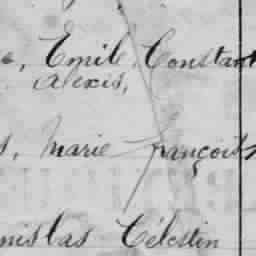 Emile Constant
Alexis,
s, Marie François
nislas Célestin